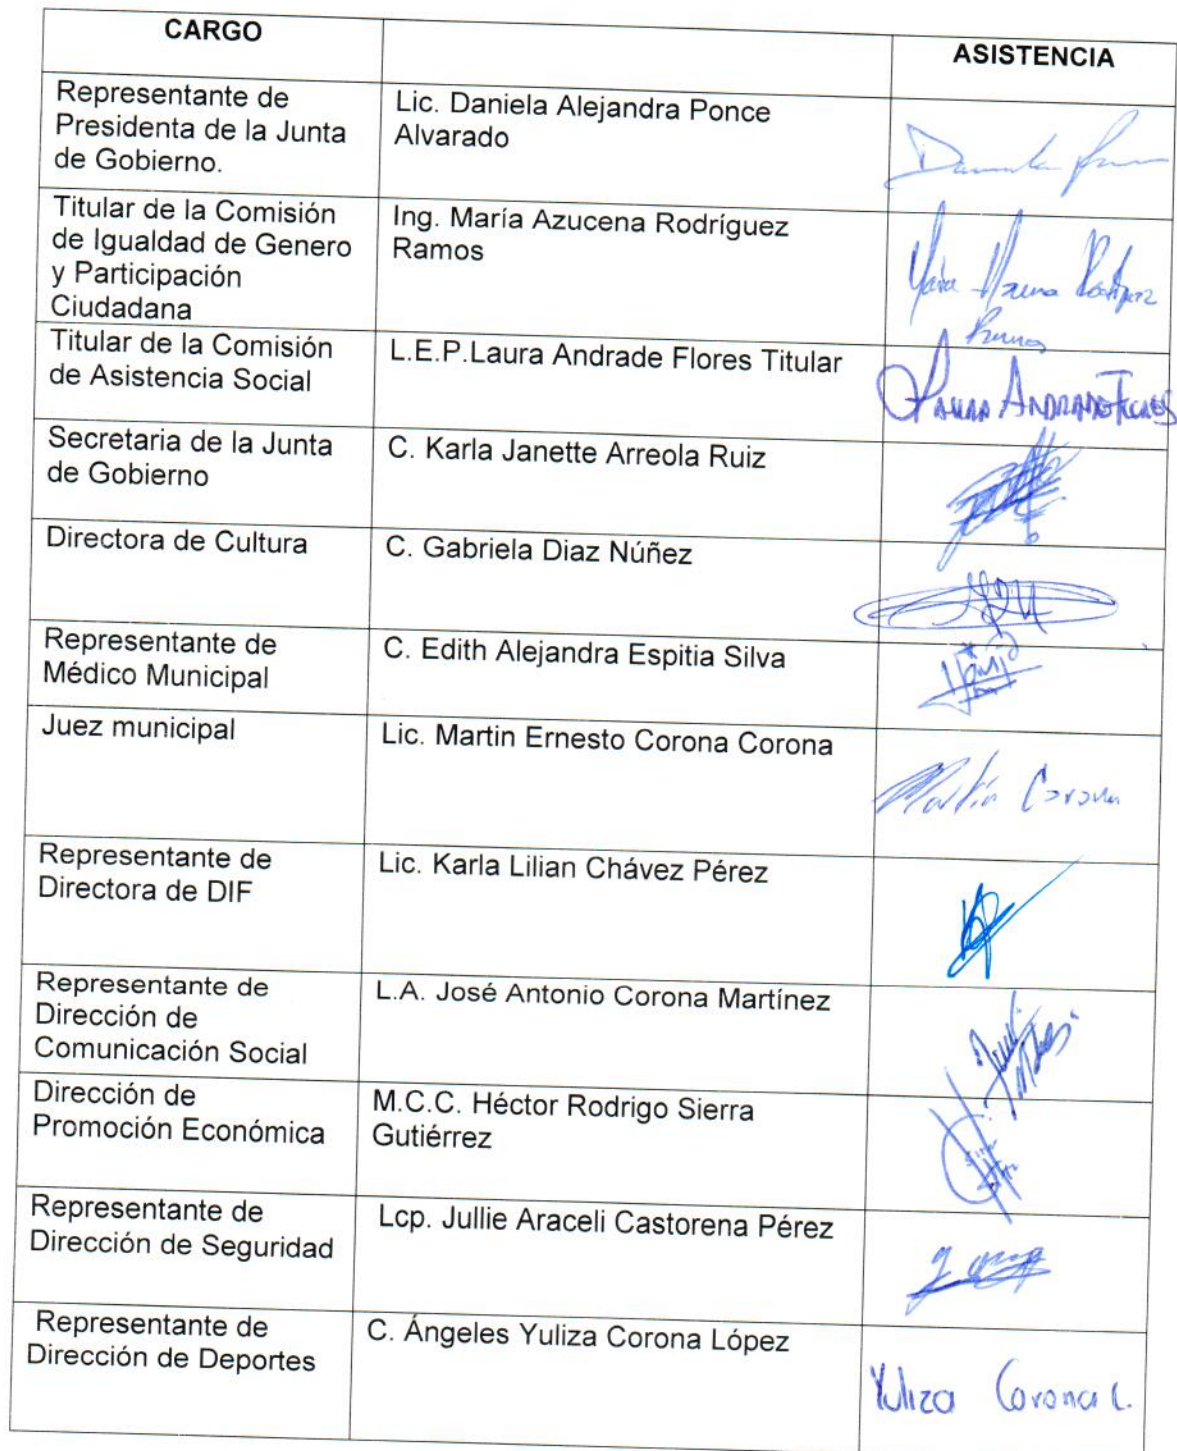 CARGO
ASISTENCIA
Representante de
Presidenta de la Junta
de Gobierno.
Lic. Daniela Alejandra Ponce
Alvarado
Titular de la Comisión
de Igualdad de Genero
y Participación
Ciudadana
Ing. María Azucena Rodríguez
Ramos
María Azucena Rodríguez
Ramos
Titular de la Comisión
de Asistencia Social
L.E.P.Laura Andrade Flores Titular
Laura Andrade Flores
Secretaria de la Junta
de Gobierno
C. Karla Janette Arreola Ruiz
Directora de Cultura
C. Gabriela Diaz Núñez
Representante de
Médico Municipal
C. Edith Alejandra Espitia Silva
Juez municipal
Lic. Martin Ernesto Corona Corona
Martín Corona
Representante de
Directora de DIF
Lic. Karla Lilian Chávez Pérez
Representante de
Dirección de
Comunicación Social
L.A. José Antonio Corona Martínez
Dirección de
Promoción Económica
M.C.C. Héctor Rodrigo Sierra
Gutiérrez
Representante de
Dirección de Seguridad
Lcp. Jullie Araceli Castorena Pérez
Representante de
Dirección de Deportes
C. Ángeles Yuliza Corona López
Yuliza Corona L.